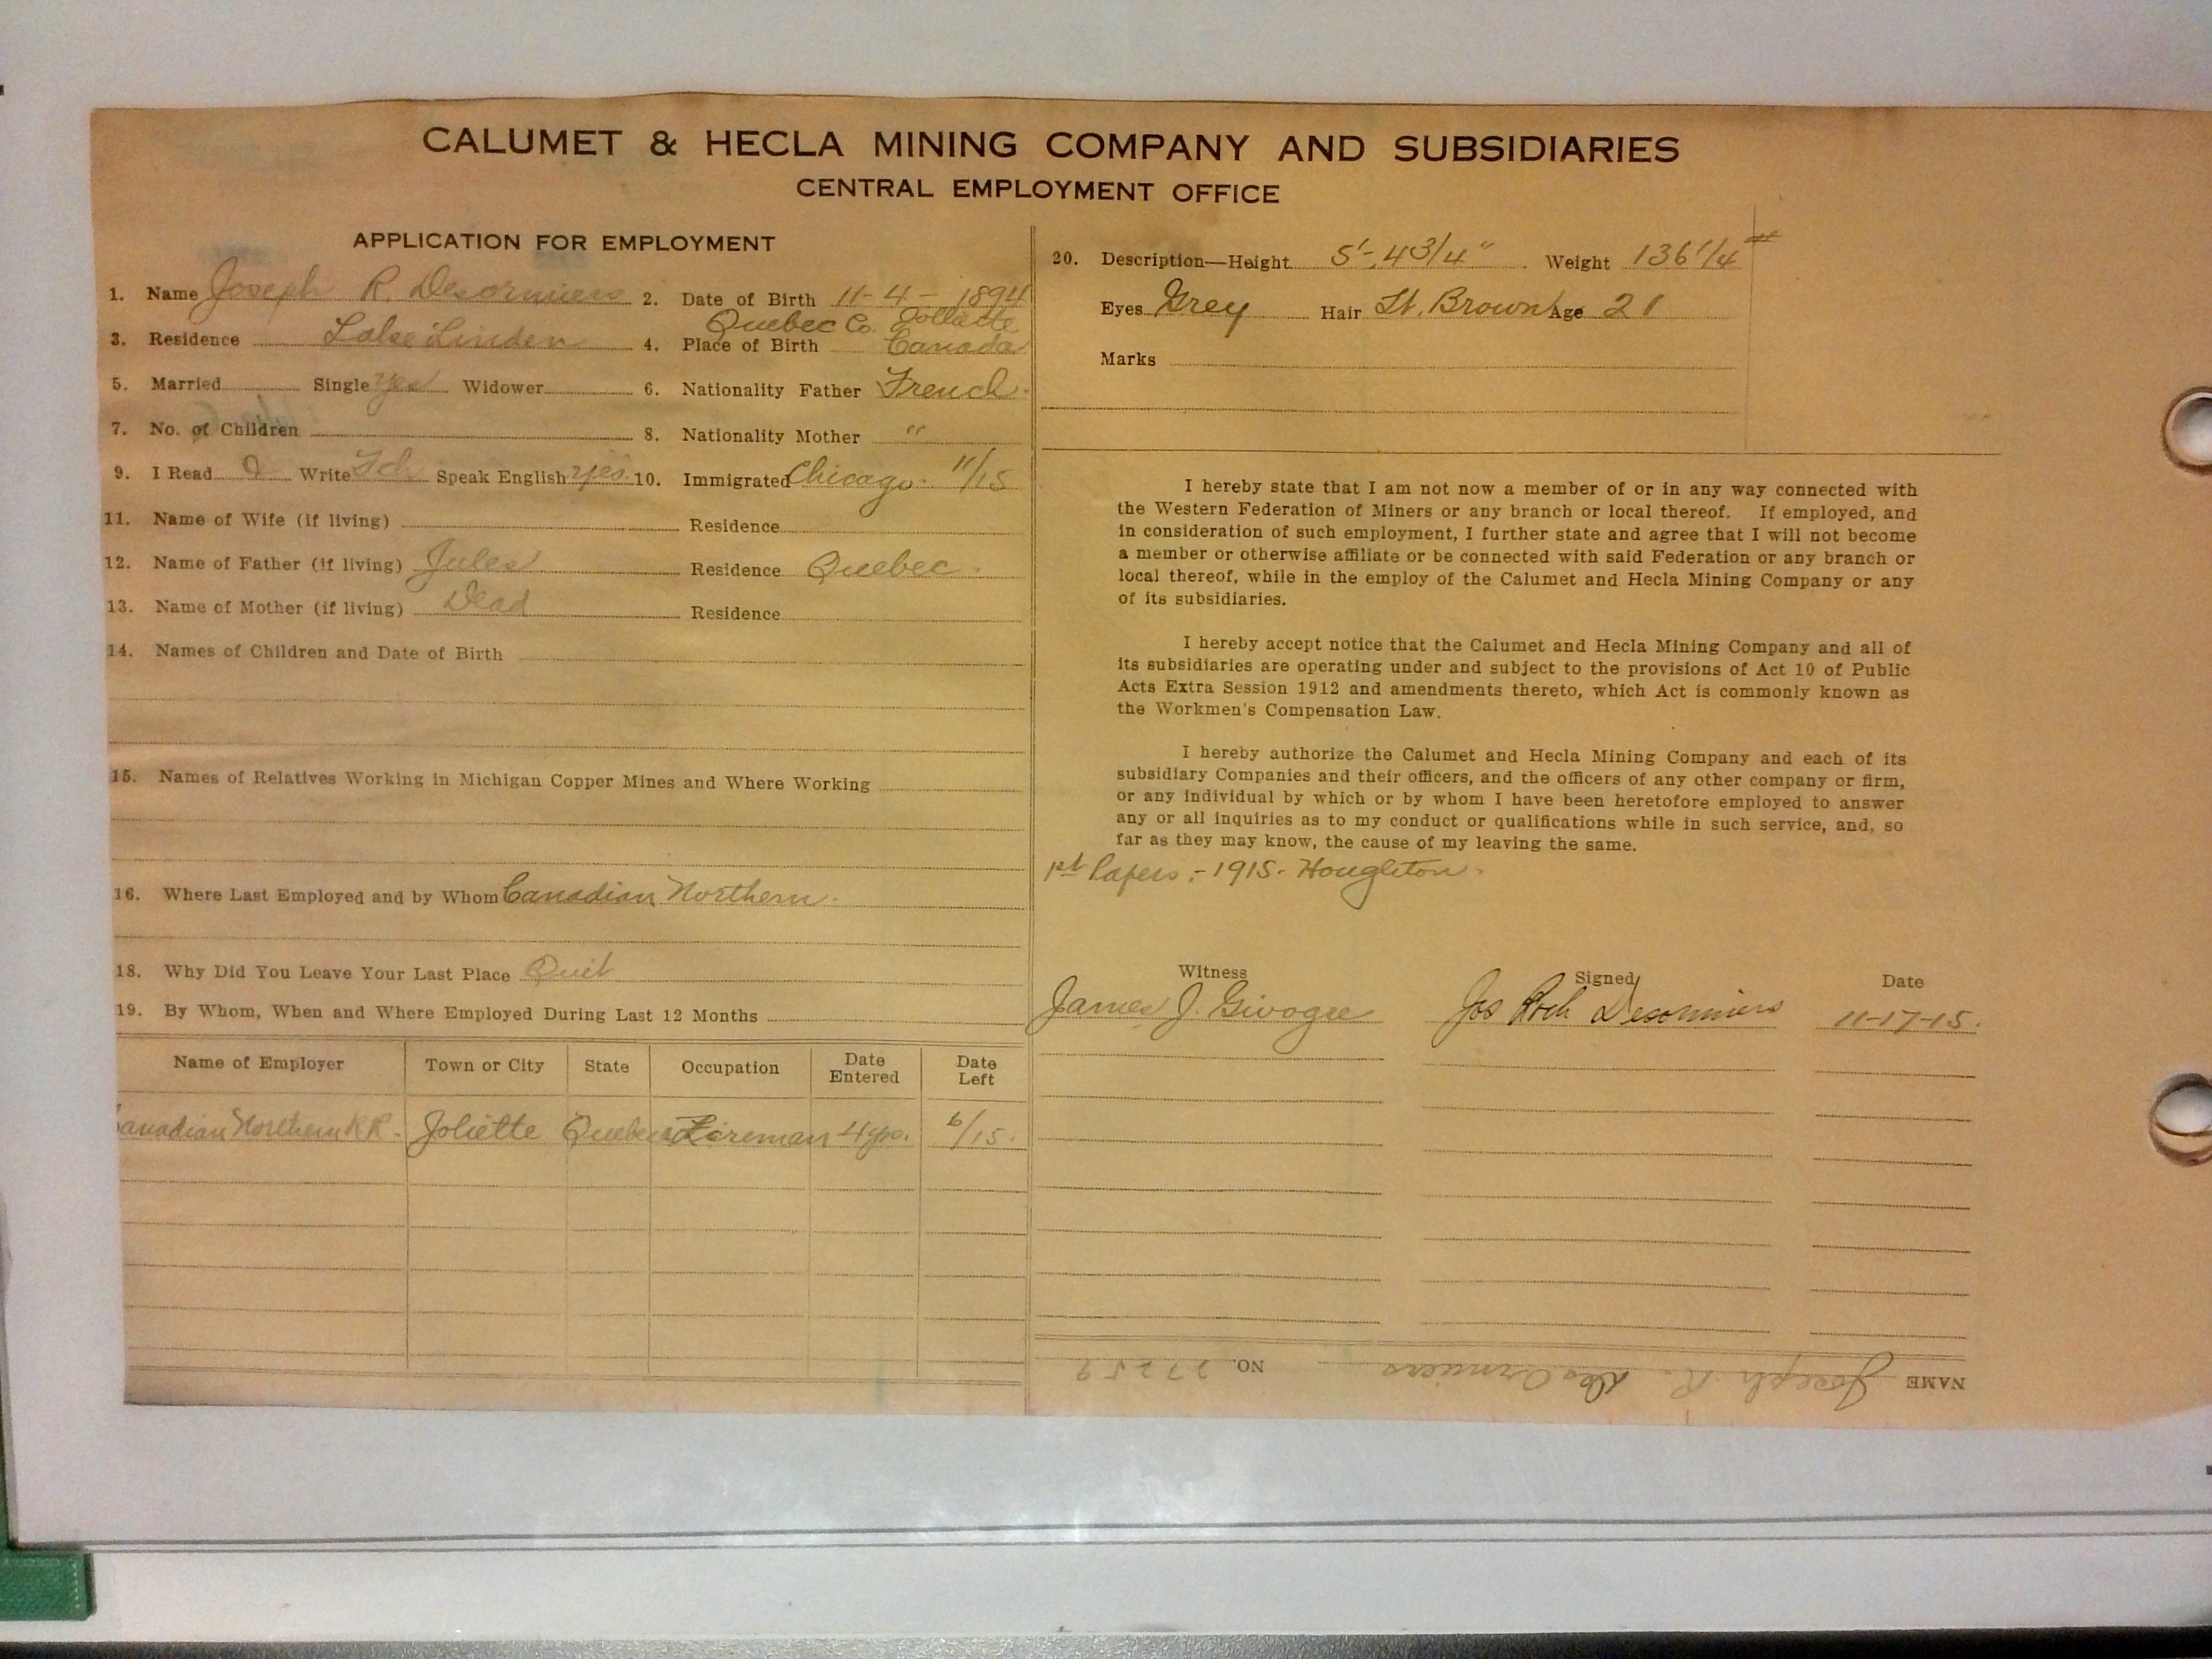 CALUMET & HECLA MINING COMPANY AND SUBSIDIARIES
CENTRAL EMPLOYMENT OFFICE
APPLICATION FOR EMPLOYMENT
1. Name Joseph R. Desormiers 2. Date of Birth 11-4-1894
Quebec Co.
3. Residence Lake Linden 4. Place of Birth Canada
5. Married Single yes Widower 6. Nationality Father French
7. No. of Children 8. Nationality Mother "
9. I Read Write Fch Speak English yes. 10. Immigrated Chicago. 11/15
11. Name of Wife (if living) Residence
12. Name of Father (if living) Jules Residence Quebec.
13. Name of Mother (if living) Dead Residence
14. Names of Children and Date of Birth
15. Names of Relatives Working in Michigan Copper Mines and Where Working
16. Where Last Employed and by Whom Canadian Northern.
18. Why Did You Leave Your Last Place Quit
19. By Whom, When and Where Employed During Last 12 Months
Name of Employer Town or City State Occupation Date Entered Date Left
Canadian Northern R.R. Joliette Quebec Fireman 4 yrs. 6/15.
20. Description—Height 5'-4 3/4" Weight 136 1/4 #
Eyes Grey Hair Lt. Brown Age 21
Marks
I hereby state that I am not now a member of or in any way connected with
the Western Federation of Miners or any branch or local thereof. If employed, and
in consideration of such employment, I further state and agree that I will not become
a member or otherwise affiliate or be connected with said Federation or any branch or
local thereof, while in the employ of the Calumet and Hecla Mining Company or any
of its subsidiaries.
I hereby accept notice that the Calumet and Hecla Mining Company and all of
its subsidiaries are operating under and subject to the provisions of Act 10 of Public
Acts Extra Session 1912 and amendments thereto, which Act is commonly known as
the Workmen's Compensation Law.
I hereby authorize the Calumet and Hecla Mining Company and each of its
subsidiary Companies and their officers, and the officers of any other company or firm,
or any individual by which or by whom I have been heretofore employed to answer
any or all inquiries as to my conduct or qualifications while in such service, and, so
far as they may know, the cause of my leaving the same.
1st Papers.-1915-Houghton.
Witness Signed Date
James J. Jos Roch Desormiers 11-17-15.
NAME Joseph R. DesOrmiers NO. 27259